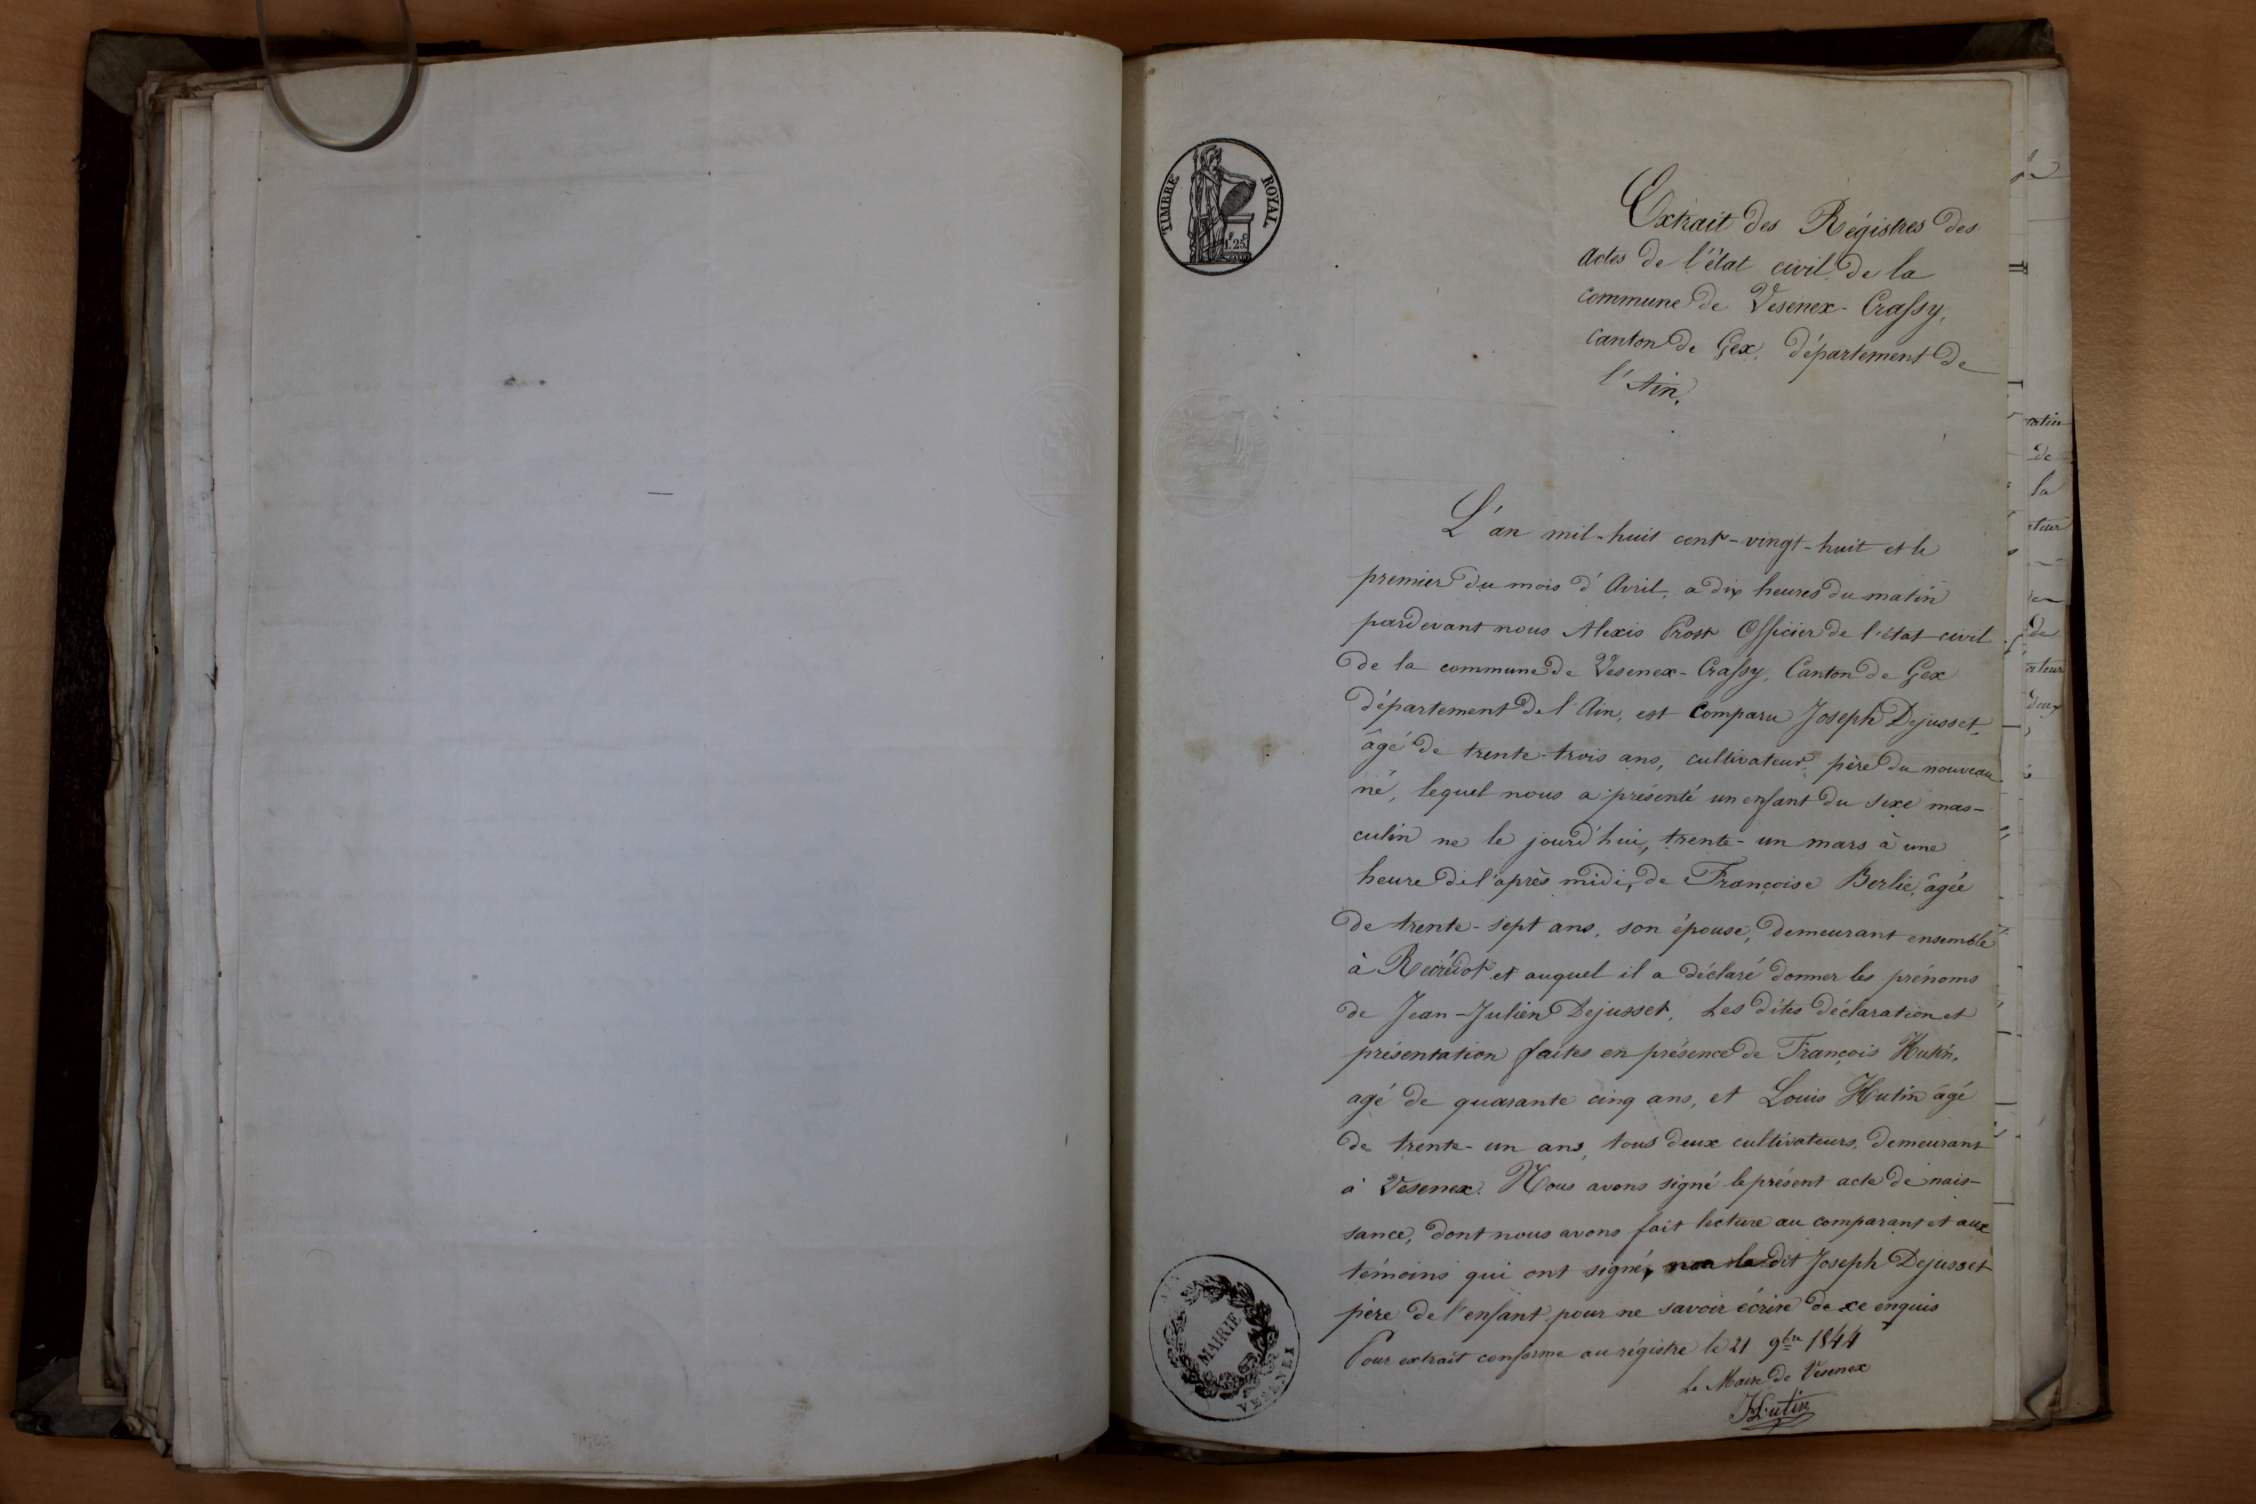 TIMBRE ROYAL
1 f 25 c
Extrait des Régistres des
actes de l'état civil de la
commune de Vesenex-Crassy,
canton de Gex, département de
l'Ain.
L'an mil-huit cent-vingt-huit et le
premier du mois d'Avril, a dix heures du matin
pardevant nous Alexis Prost Officier de l'état civil
de la commune de Vesenex-Crassy, Canton de Gex
département de l'Ain, est Comparu Joseph Dejusset,
âgé de trente-trois ans, cultivateur, père du nouveau
né, lequel nous a présenté un enfant du sexe mas-
culin ne le jourd'hui, trente-un mars à une
heure de l'après midi, de Françoise Berlie, âgée
de trente-sept ans, son épouse, demeurant ensemble
à et auquel il a déclaré donner les prénoms
de Jean-Julien Dejusset. Les dites déclaration et
présentation faites en présence de François Hutin,
agé de quarante cinq ans, et Louis Hutin âgé
de trente-un ans, tous deux cultivateurs, demeurant
à Vesenex. Nous avons signé le présent acte de nais-
sance, dont nous avons fait lecture au comparant et aux
témoins qui ont signé, non le dit Joseph Dejusset
père de l'enfant pour ne savoir écrire de ce enquis
Pour extrait conforme au régistre le 21 9bre 1844
Le Maire de Vesenex
Hutin
MAIRIE
atin
de
la
teur
de
ateur
deux